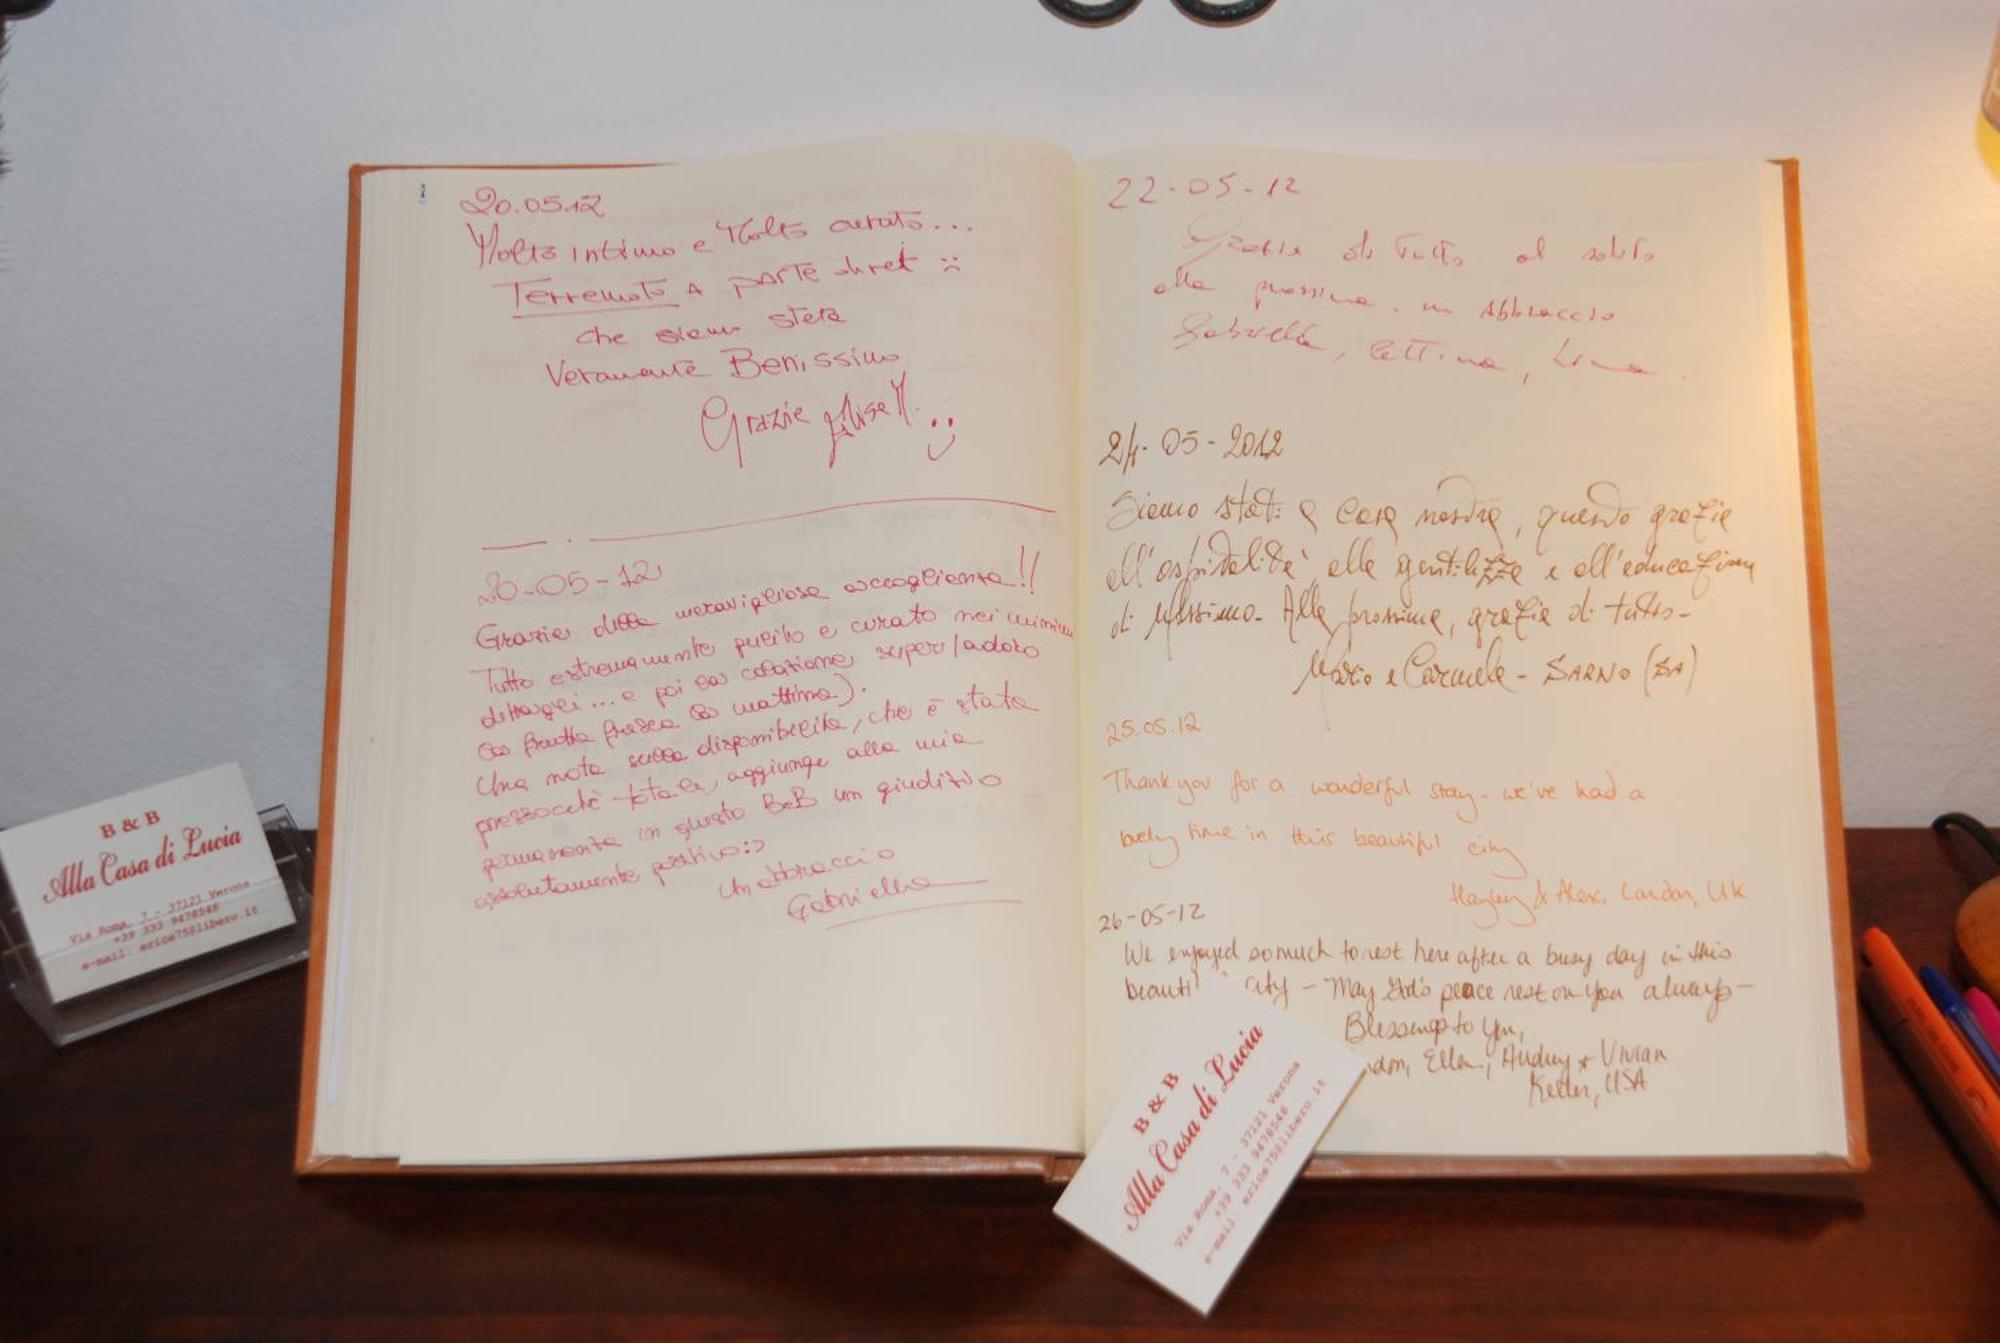 20.05.12
Molto intimo e Molto curato...
Terremoto A parte direi :(
che siamo state
Veramente Benissimo
Grazie
20-05-12
Grazie della meravigliosa accoglienza!!
Tutto estremamente pulito e curato nei minimi
dettagli... e poi la colazione, super (adoro
la frutta fresca la mattina).
Una nota sulla disponibilità, che è stata
pressochè totale, aggiunge alla mia
permanenza in questo B&B un giudizio
assolutamente positivo :)
Un abbraccio
Gabriella
22-05-12
Grazie di Tutto al solito
alla prossima. un Abbraccio
Gabriella, Lettina, Lina
24-05-2012
Siamo stati a casa nostra, questo grazie
all'ospitalità alla gentilezza e all'educazione
di Massimo. Alla prossima, grazie di tutto-
Mario e Carmela - SARNO (SA)
25.05.12
Thank you for a wonderful stay - we've had a
lovely time in this beautiful city
& Alex, London, UK
26-05-12
We enjoyed so much to rest here after a busy day in this
beauti city - May God's peace rest on you always-
Blessings to you,
Ellen, Audrey & Vivian
Keller, USA
B & B
Alla Casa di Lucia
Via Roma, 7 - 37121 Verona
+39 333 9478548
e-mail: erice75@libero.it
B & B
Alla Casa di Lucia
Via Roma, 7 - 37121 Verona
+39 333 9478548
e-mail: erice75@libero.it